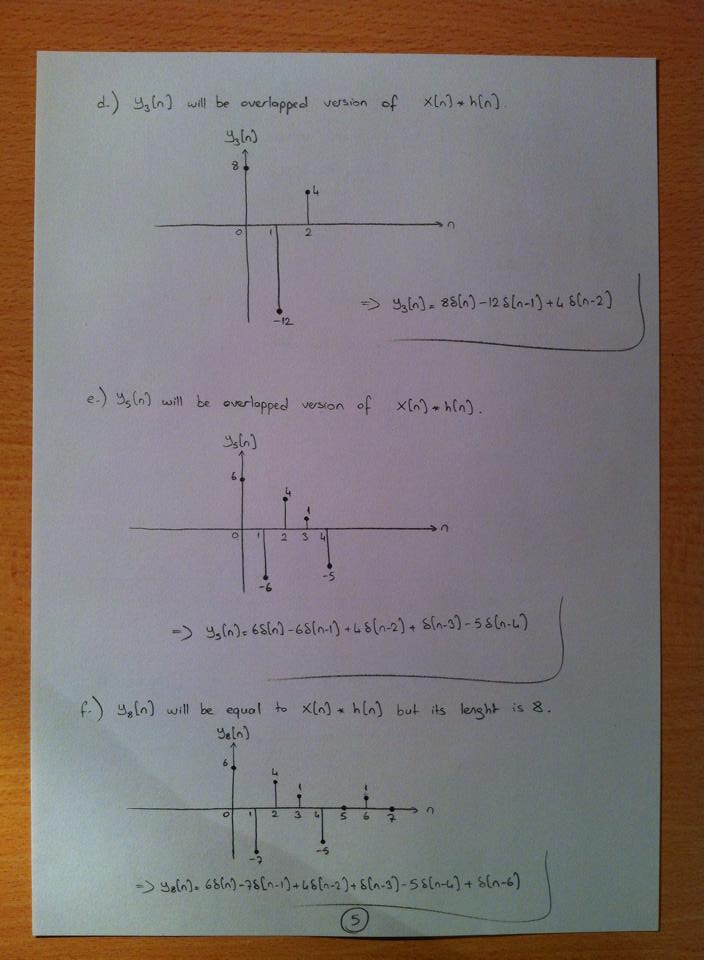 d.) y₃[n] will be overlapped version of x[n] * h[n].
y₃[n]
8
4
0 1 2 n
-12
=> y₃[n] = 8δ[n] - 12δ[n-1] + 4δ[n-2]
e.) y₅[n] will be overlapped version of x[n] * h[n].
y₅[n]
6
4
1
0 1 2 3 4 n
-5
-6
=> y₅[n] = 6δ[n] - 6δ[n-1] + 4δ[n-2] + δ[n-3] - 5δ[n-4]
f.) y₈[n] will be equal to x[n] * h[n] but its lenght is 8.
y₈[n]
6
4
1 1
0 1 2 3 4 5 6 7 n
-5
-7
=> y₈[n] = 6δ[n] - 7δ[n-1] + 4δ[n-2] + δ[n-3] - 5δ[n-4] + δ[n-6]
5